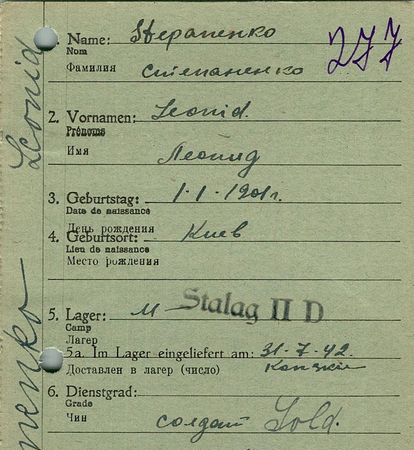 1. Name: Stepanenko
Nom
Фамилия степаненко
277
2. Vornamen: Leonid.
Prénoms
Имя Леонид
3. Geburtstag: 1·1·1901г.
Date de naissance
День рождения
4. Geburtsort: Киев
Lieu de naissance
Место рождения
5. Lager: M - Stalag II D
Camp
Лагерь
5a. Im Lager eingeliefert am: 31-7-42.
Доставлен в лагерь (число)
6. Dienstgrad:
Grade
Чин солдат Sold.
Leonid